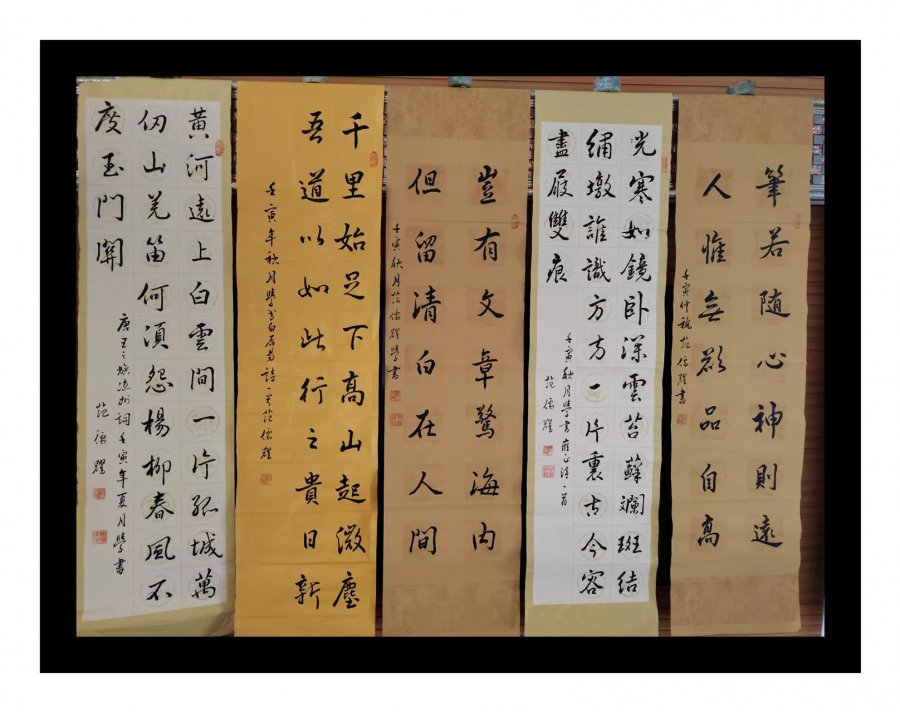 筆若随心神則遠
人惟無欲品自高
壬寅仲秋范儒耀書
光寒如鏡卧深雲苔蘚斕斑結
繡墩誰識方方一片裏古今容
盡屐雙痕
壬寅秋月學書雍正詩一首
范儒耀
豈有文章驚海内
但留清白在人間
壬寅秋月范儒耀學書
千里始足下高山起微塵
吾道以如此行之貴日新
壬寅年秋月學書白居易詩一首范儒耀
黄河遠上白雲間一片孤城萬
仞山羌笛何須怨楊柳春風不
度玉門關
唐王之煥涼州詞壬寅年夏月學書
范儒耀